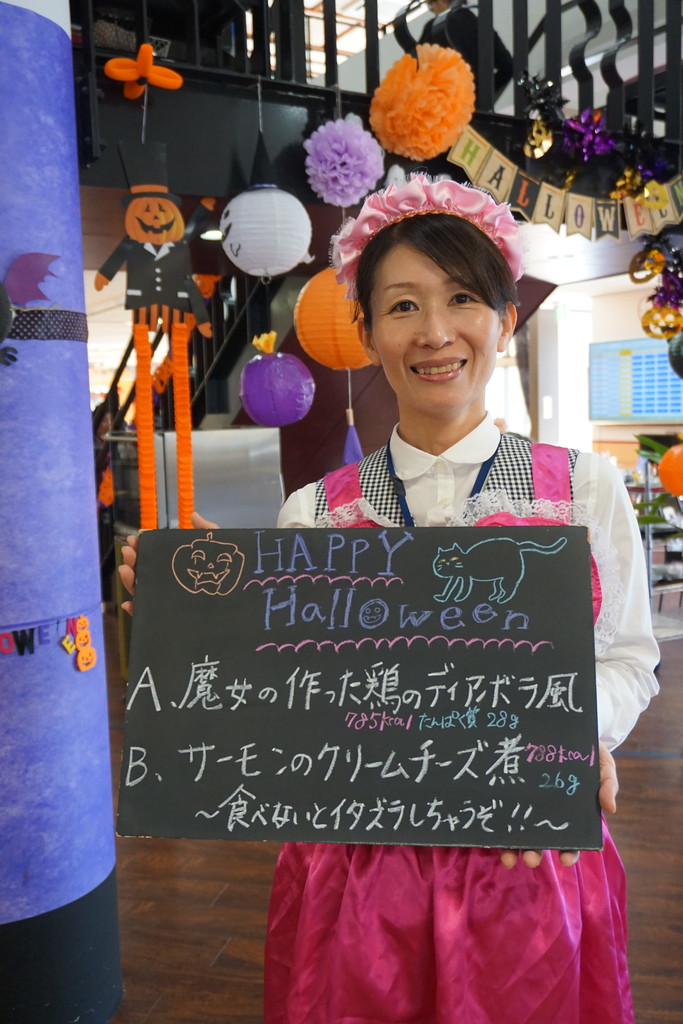 HALLOWEEN
HAPPY
Halloween
A、魔女の作った鶏のディアボラ風
785kcal たんぱく質 28g
B、サーモンのクリームチーズ煮 788kcal
26g
～食べないとイタズラしちゃうぞ!!～
OWEEN